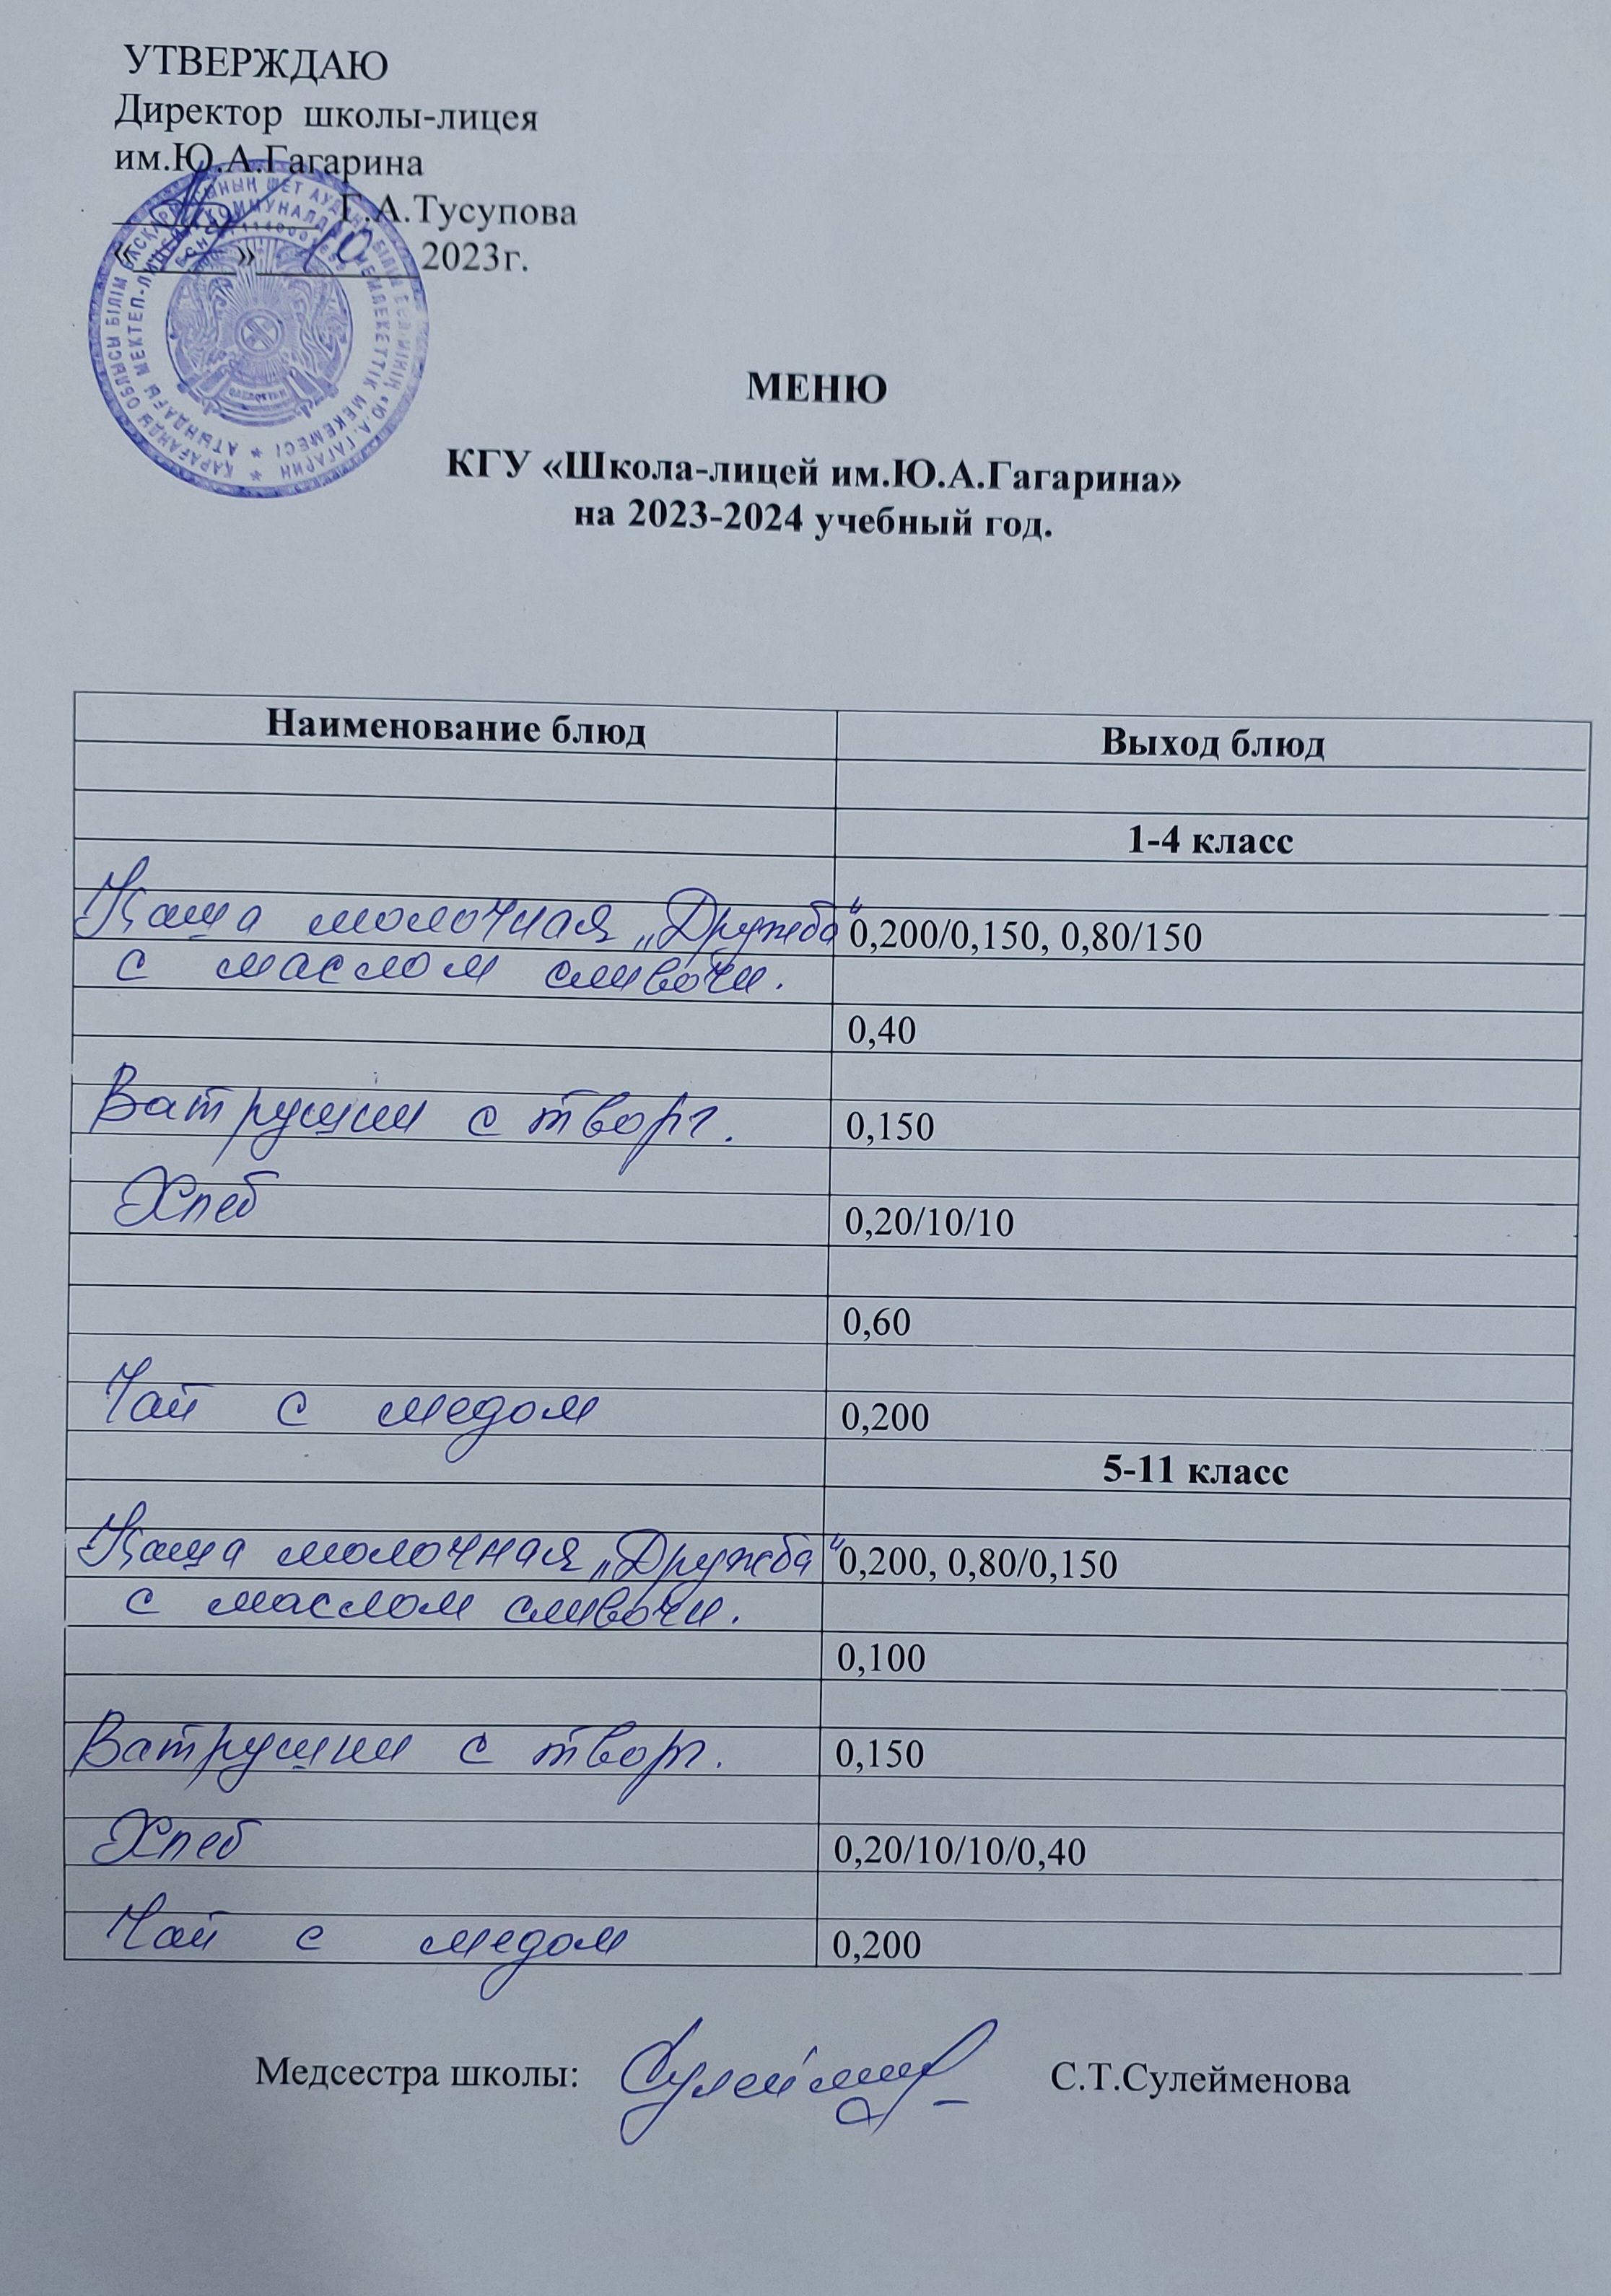 УТВЕРЖДАЮ
Директор школы-лицея
им.Ю.А.Гагарина
Г.А.Тусупова
« » 10 2023г.
МЕНЮ
КГУ «Школа-лицей им.Ю.А.Гагарина»
на 2023-2024 учебный год.
Наименование блюд Выход блюд
1-4 класс
Каша молочная „Дружба“ 0,200/0,150, 0,80/150
с маслом сливочн.
0,40
Ватрушки с творг. 0,150
Хлеб 0,20/10/10
0,60
Чай с медом 0,200
5-11 класс
Каша молочная „Дружба“ 0,200, 0,80/0,150
с маслом сливочн.
0,100
Ватрушки с творг. 0,150
Хлеб 0,20/10/10/0,40
Чай с медом 0,200
Медсестра школы: С.Т.Сулейменова